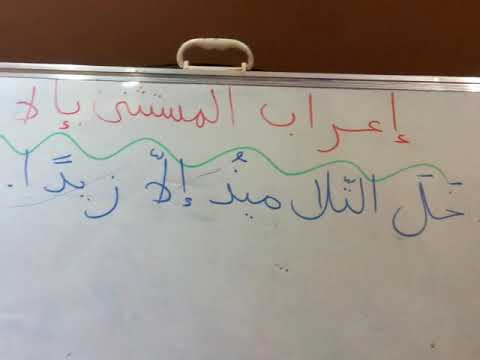 إعراب المستثنى بإلا
خَلَ التّلاميذُ إلّا زيدًا.